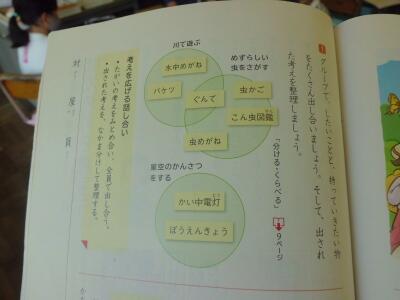 1 グループで、したいことと、持っていきたい物
をたくさん出し合いましょう。そして、出され
た考えを整理しましょう。
「分ける・くらべる」 9ページ
めずらしい
虫をさがす
川で遊ぶ
水中めがね
バケツ
ぐんて
虫かご
こん虫図鑑
虫めがね
星空のかんさつ
をする
かい中電灯
ぼうえんきょう
考えを広げる話し合い
・たがいの考えをみとめ合い、全員で出し合う。
・出された考えを、なかま分けして整理する。
対
屋
員